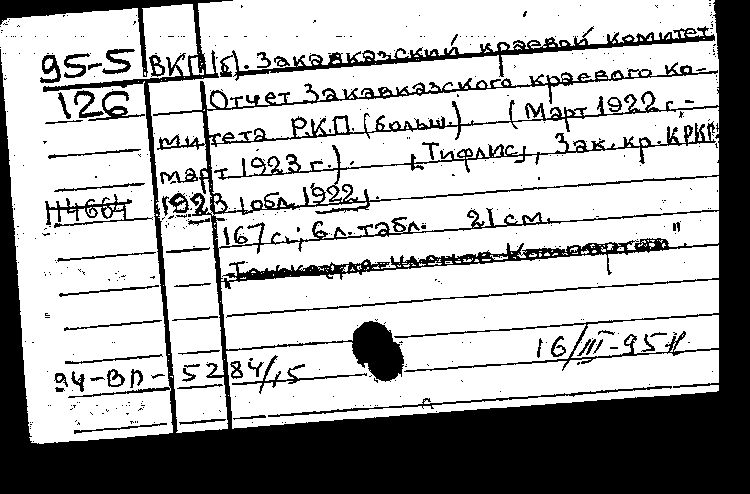 95-5 ВКП(б). Закавказский краевой комитет
126 Отчет Закавказского краевого ко-
митета Р.К.П. (больш.). (Март 1922 г.-
март 1923 г.). [Тифлис], Зак. кр. КРКП
114664 1923 [обл. 1922].
167 с.; 6 л. табл. 21 см.
„Только для членов Компартии".
94-ВП-5284/15 16/III-95